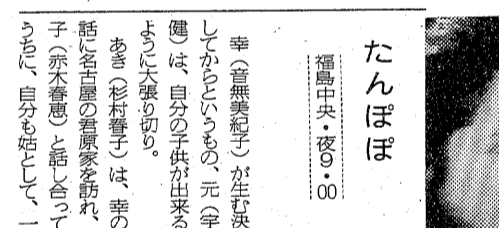 たんぽぽ
福島中央・夜9・00
幸(音無美紀子)が生む決
してからというもの、元(宇
健)は、自分の子供が出来る
ように大張り切り。
あき(杉村春子)は、幸の
話に名古屋の君原家を訪れ、
子(赤木春恵)と話し合って
うちに、自分も姑として、一